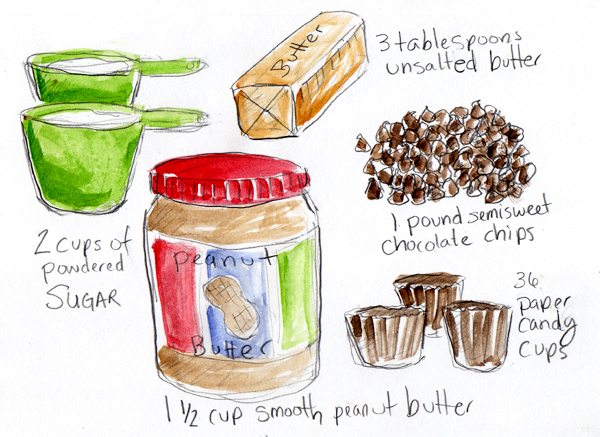 Butter
3 tablespoons
unsalted butter
1 pound semisweet
chocolate chips
2 cups of
powdered
SUGAR
peanut
Butter
36
paper
candy
cups
1 1/2 cup smooth peanut butter